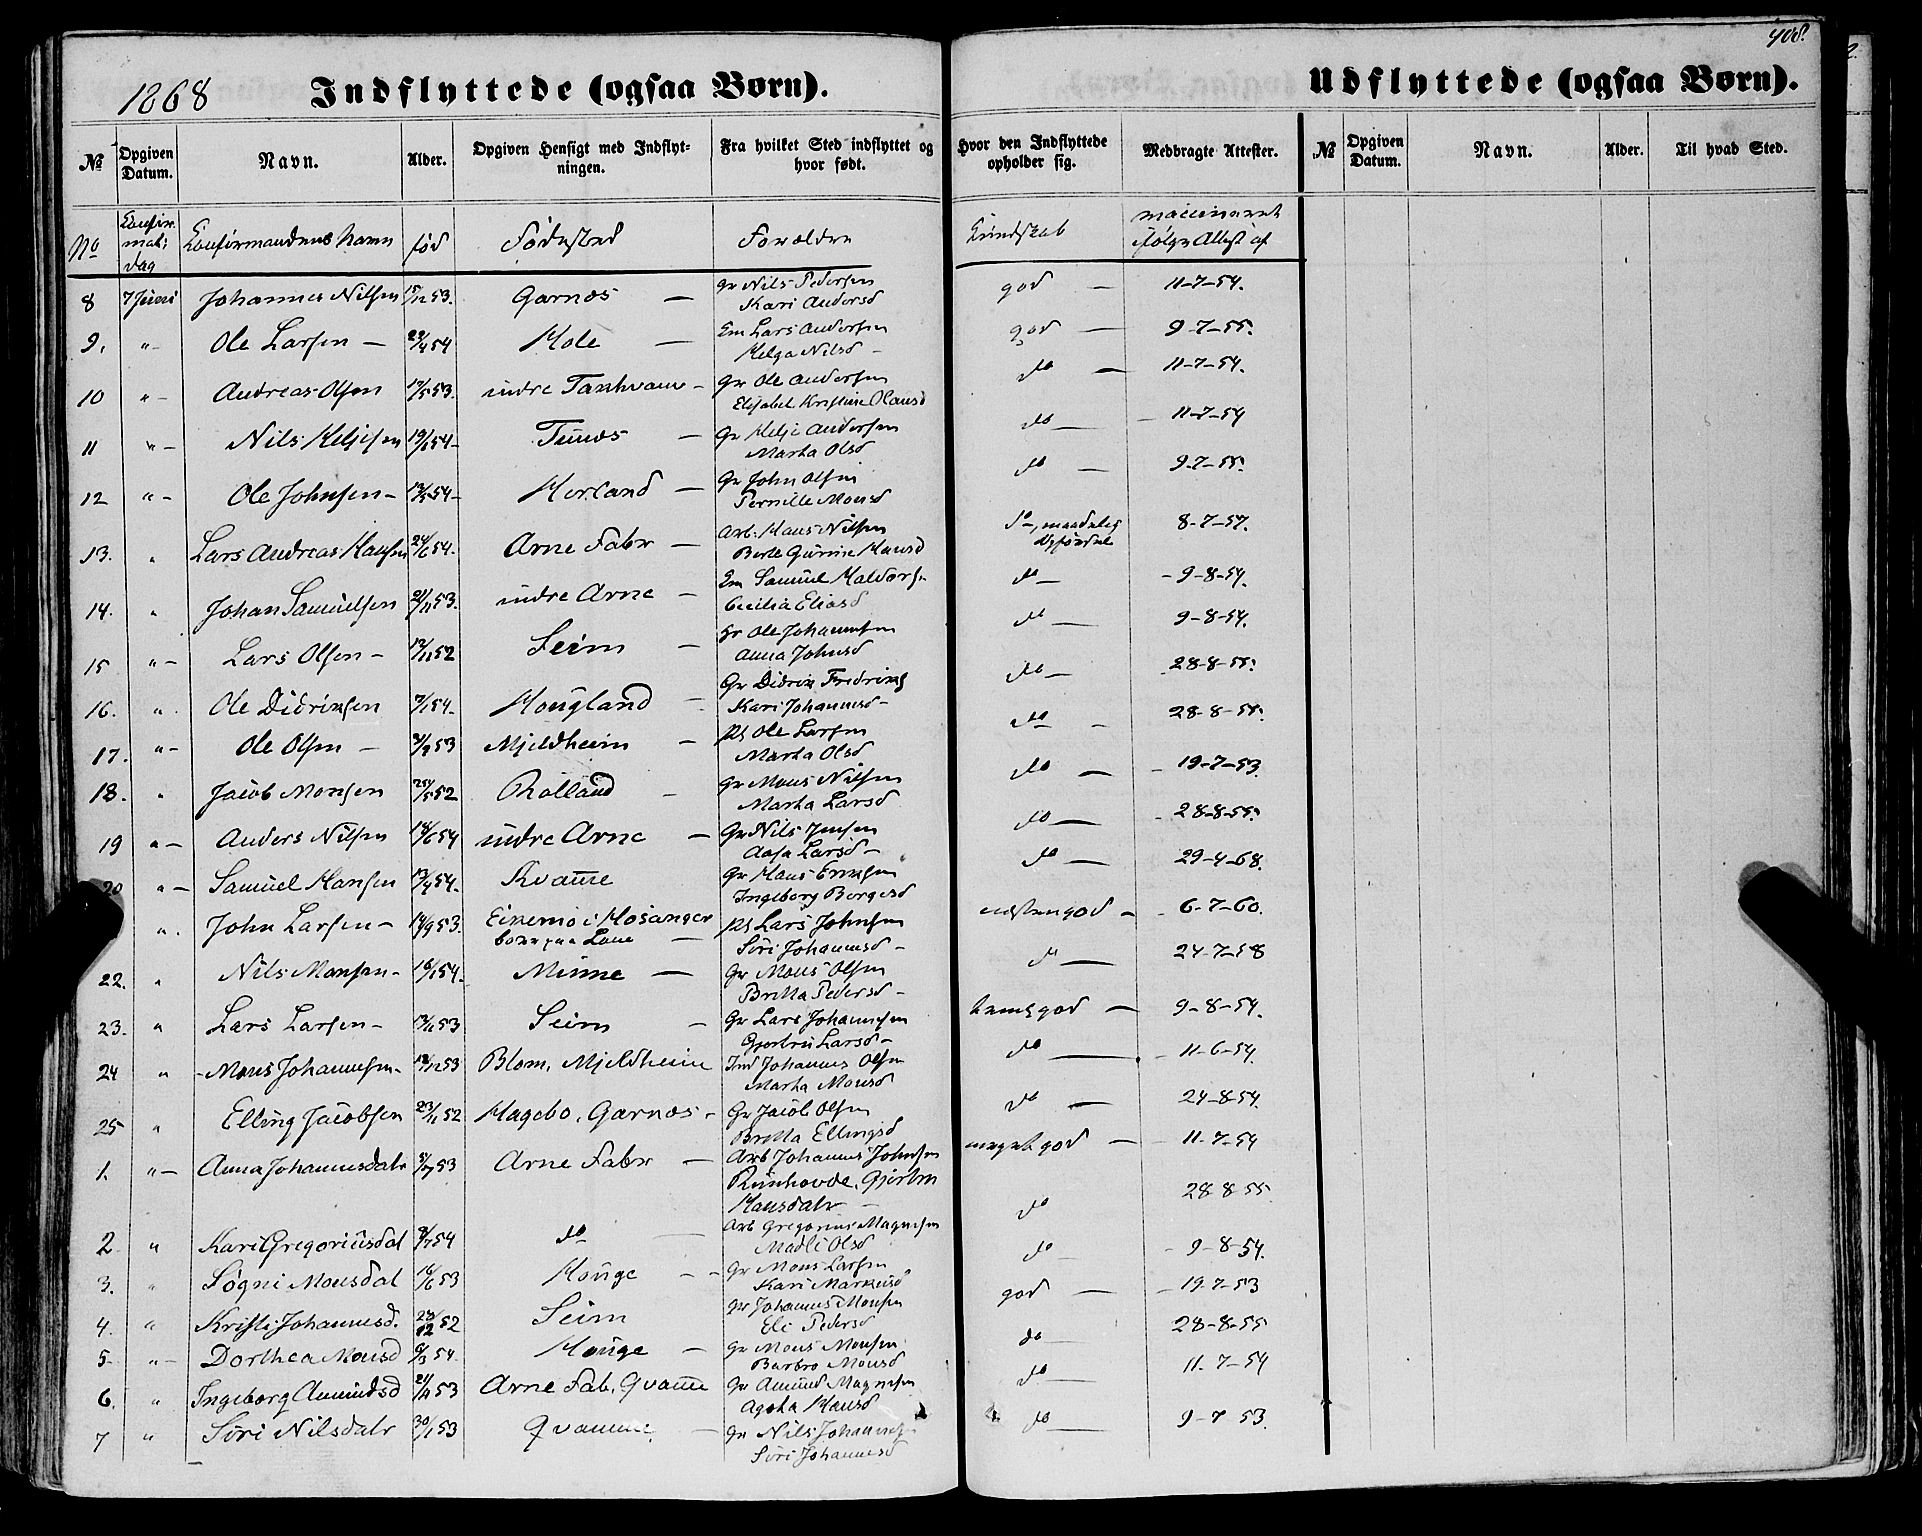 408.
1868 Indflyttede (ogsaa Børn).
Udflyttede (ogsaa Børn).
No Opgiven Datum. Navn. Alder. Opgiven Hensigt med Indflytningen. Fra hvilket Sted indflyttet og hvor født. Hvor den Indflyttede opholder sig. Medbragte Attester. No Opgiven Datum. Navn. Alder. Til hvad Sted.
No Confirmat: dag Confirmandens Navn fød Fødested Forældre Kundskab vaccineret ifølge Attest af
8 7 Juni Johannes Nilsen 15/12 53. Garnæs — Gr Nils Pedersen god — 11-7-54.
Kari Andersd
9. " Ole Larsen — 22/4 54 Hole — Em Lars Andersen god — 9-7-55.
Helga Nilsd —
10 " Andreas Olsen 17/5 53. indre Gr Ole Andersen do — 11-7-54.
Elisabet Kristine Olausd
11 " Nils Heljesen 19/1 54 — Gr Helje Andersen do — 11-7-54
Marta Olsd
12 " Ole Johnsen — 54 — Gr John Olsen do — 9-7-55.
Pernille Monsd
13. " Lars Andreas Hansen 24/6 54. Arne Fabr — Arb. Hans Nilsen do, 8-7-57.
Berte Hansd
14. " Johan Samuelsen 21/11 53. indre Arne — Em Samuel do — 9-8-54.
Cecilia Eliasd
15 " Lars Olsen — 52 Seim — Gr Ole Johannesen do — 9-8-54.
Anna Johnsd
16. " Ole Didriksen 7/1 54. Hougland — Gr Didrik Fredriks do — 28-8-55.
Kari Johannesd —
17. " Ole Olsen — 53 Mjeldheim — Pl Ole Larsen do — 28-8-55.
Marta Olsd
18. " Jacob Monsen 25/5 52 Rolland — Gr Mons Nilsen do — 19-7-53
Marta Larsd
19 " Anders Nilsen 14/6 54 indre Arne — Gr Nils Jensen do — 28-8-55.
Aasa Larsd —
20 " Samuel Hansen 13/4 54. Kvame Gr Hans Eriksen do — 29-4-68.
Ingeborg Borgesd
" John Larsen — 14/9 53. Eikemo i Hosanger Pl Lars Johnsen næsten god — 6-7-60.
Lone — Siri Johannesd —
22. " Nils Monsen — 16/1 54. Minne — Gr Mons Olsen do — 24-7-58
Britta Pedersd —
23. " Lars Larsen — 53 Seim — Gr Lars Johannesen temlgod — 9-8-54.
Gjertru Larsd —
24 " Mons Johannesen — 53 Blom, Mjeldheim Ind Johannes Olsen do — 11-6-54.
Marta Monsd
25 " Elling Jacobsen 23/11 52 Hagebø, Garnæs — Gr Jacob Olsen do — 24-8-54.
Britta Ellingsd
1. " Anna Johannesdatr 53 Arne Fabr — Arb Johannes Johnsen meget god — 11-7-54
Gjertru
Hansdatr —
2 " Kari Gregoriusdat 54 do — Arb Gregorius Magnesen do 28-8-55
Madli Olsd
3. " Søgni Monsdat 16/6 53 Houge — Gr Mons Larsen do — 9-8-54.
Kari Markusd
4. " Kristi Johannesd. 28/12 52 Seim Gr Johannes Monsen god — 19-7-53
Eli Pedersd
5 " Dorthea Monsd 6/3 54. Houge — Gr Mons Monsen do — 28-8-55
Barbro Monsd
6. " Ingeborg Amundsd 53 Arne Fab, Qvame Gr Amund Magnesen do — 11-7-54
Agata Hansd
7 " Siri Nilsdatr 30/1 53 Qvamme — Gr Nils Johannes do — 9-7 53.
Siri Johannesd